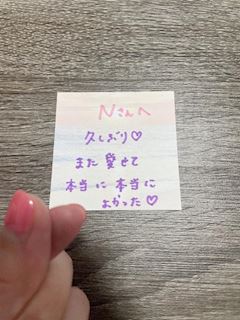 Nさんへ
久しぶり♡
また 愛せて
本当に 本当に
よかった♡